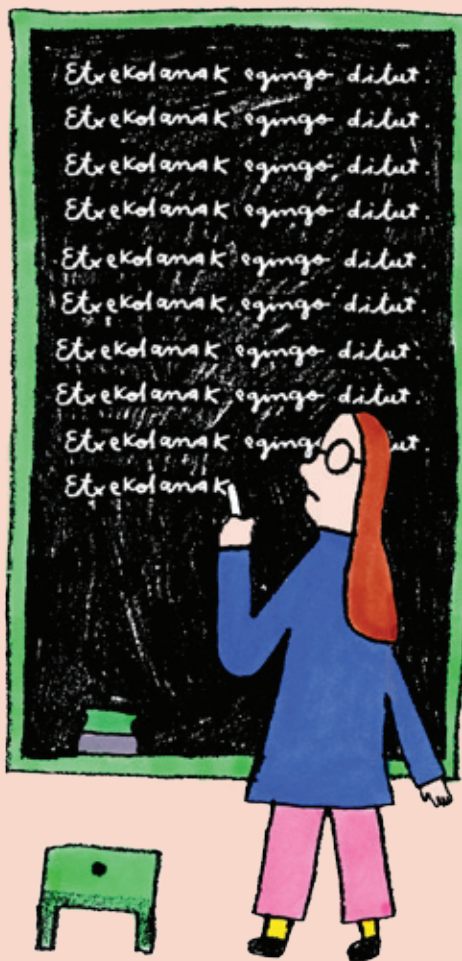 Etxekolanak egingo ditut.
Etxekolanak egingo ditut.
Etxekolanak egingo ditut.
Etxekolanak egingo ditut.
Etxekolanak egingo ditut.
Etxekolanak egingo ditut.
Etxekolanak egingo ditut.
Etxekolanak egingo ditut.
Etxekolanak
Etxekolanak